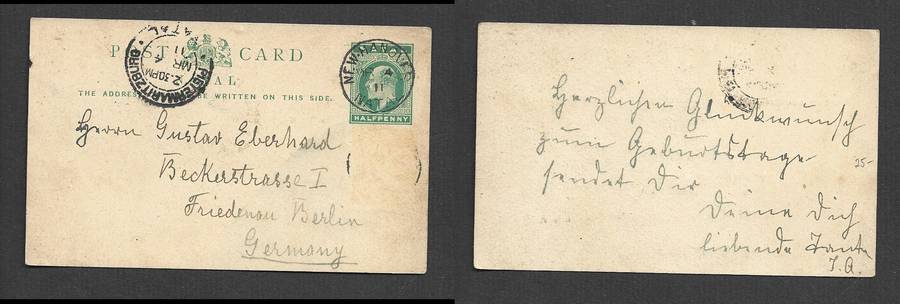 POST CARD
NATAL
THE ADDRESS BE WRITTEN ON THIS SIDE.
PIETERMARITZBURG
NATAL
2.30 PM
MR
11
NEW-HANOVER
11
NATAL
HALFPENNY
Herrn Gustav Eberhard
Beckerstrasse I
Friedenau Berlin
Germany
Herzlichen Glückwunsch
zum Geburtstage
sendet Dir
Deine Dich
liebende Tante
25-